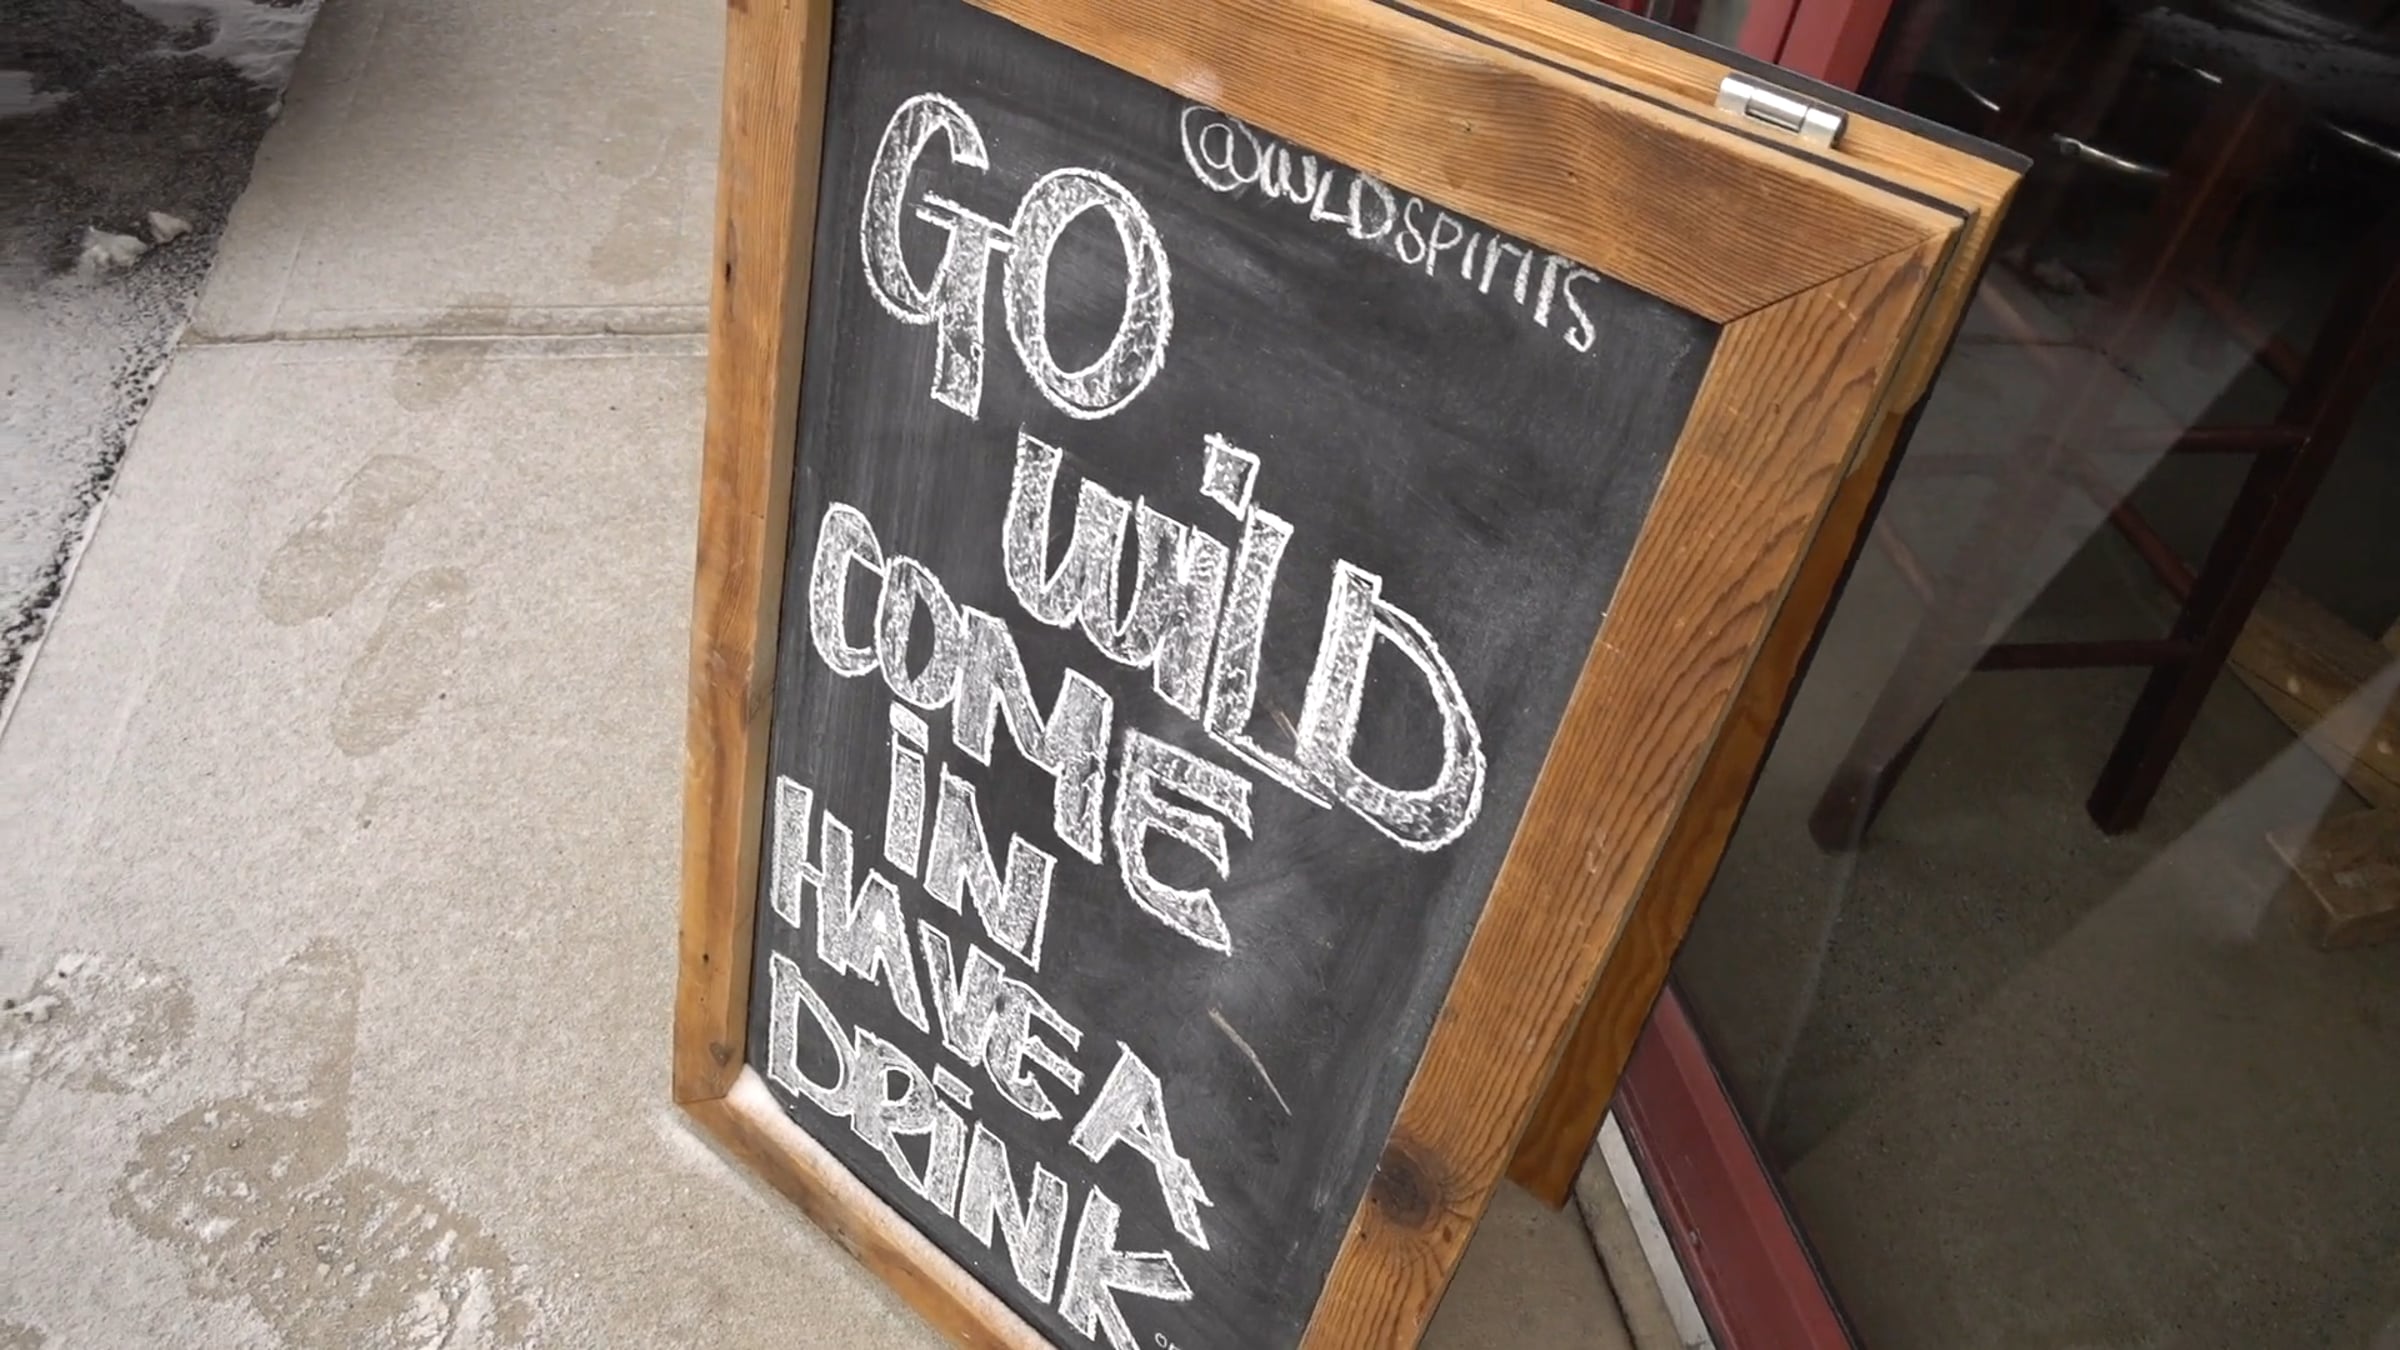 @WLDSPIRITS
GO
WiLD
COME
iN
HAVE A
DRiNK